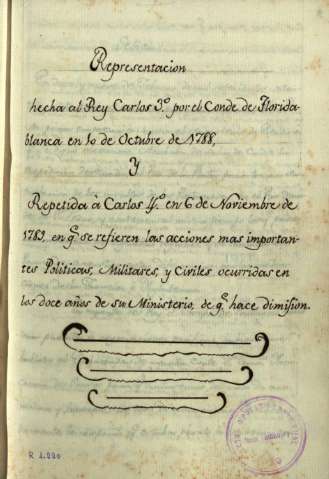 Representacion
hecha al Rey Carlos 3.º por el Conde de Florida-
blanca en 10 de Octubre de 1788,
Y
Repetida à Carlos 4.º en 6 de Noviembre de
1789, en q.e se refieren las acciones mas importan-
tes Politicas, Militares, y Civiles ocurridas en
los doce años de su Ministerio, de q.e hace dimision.